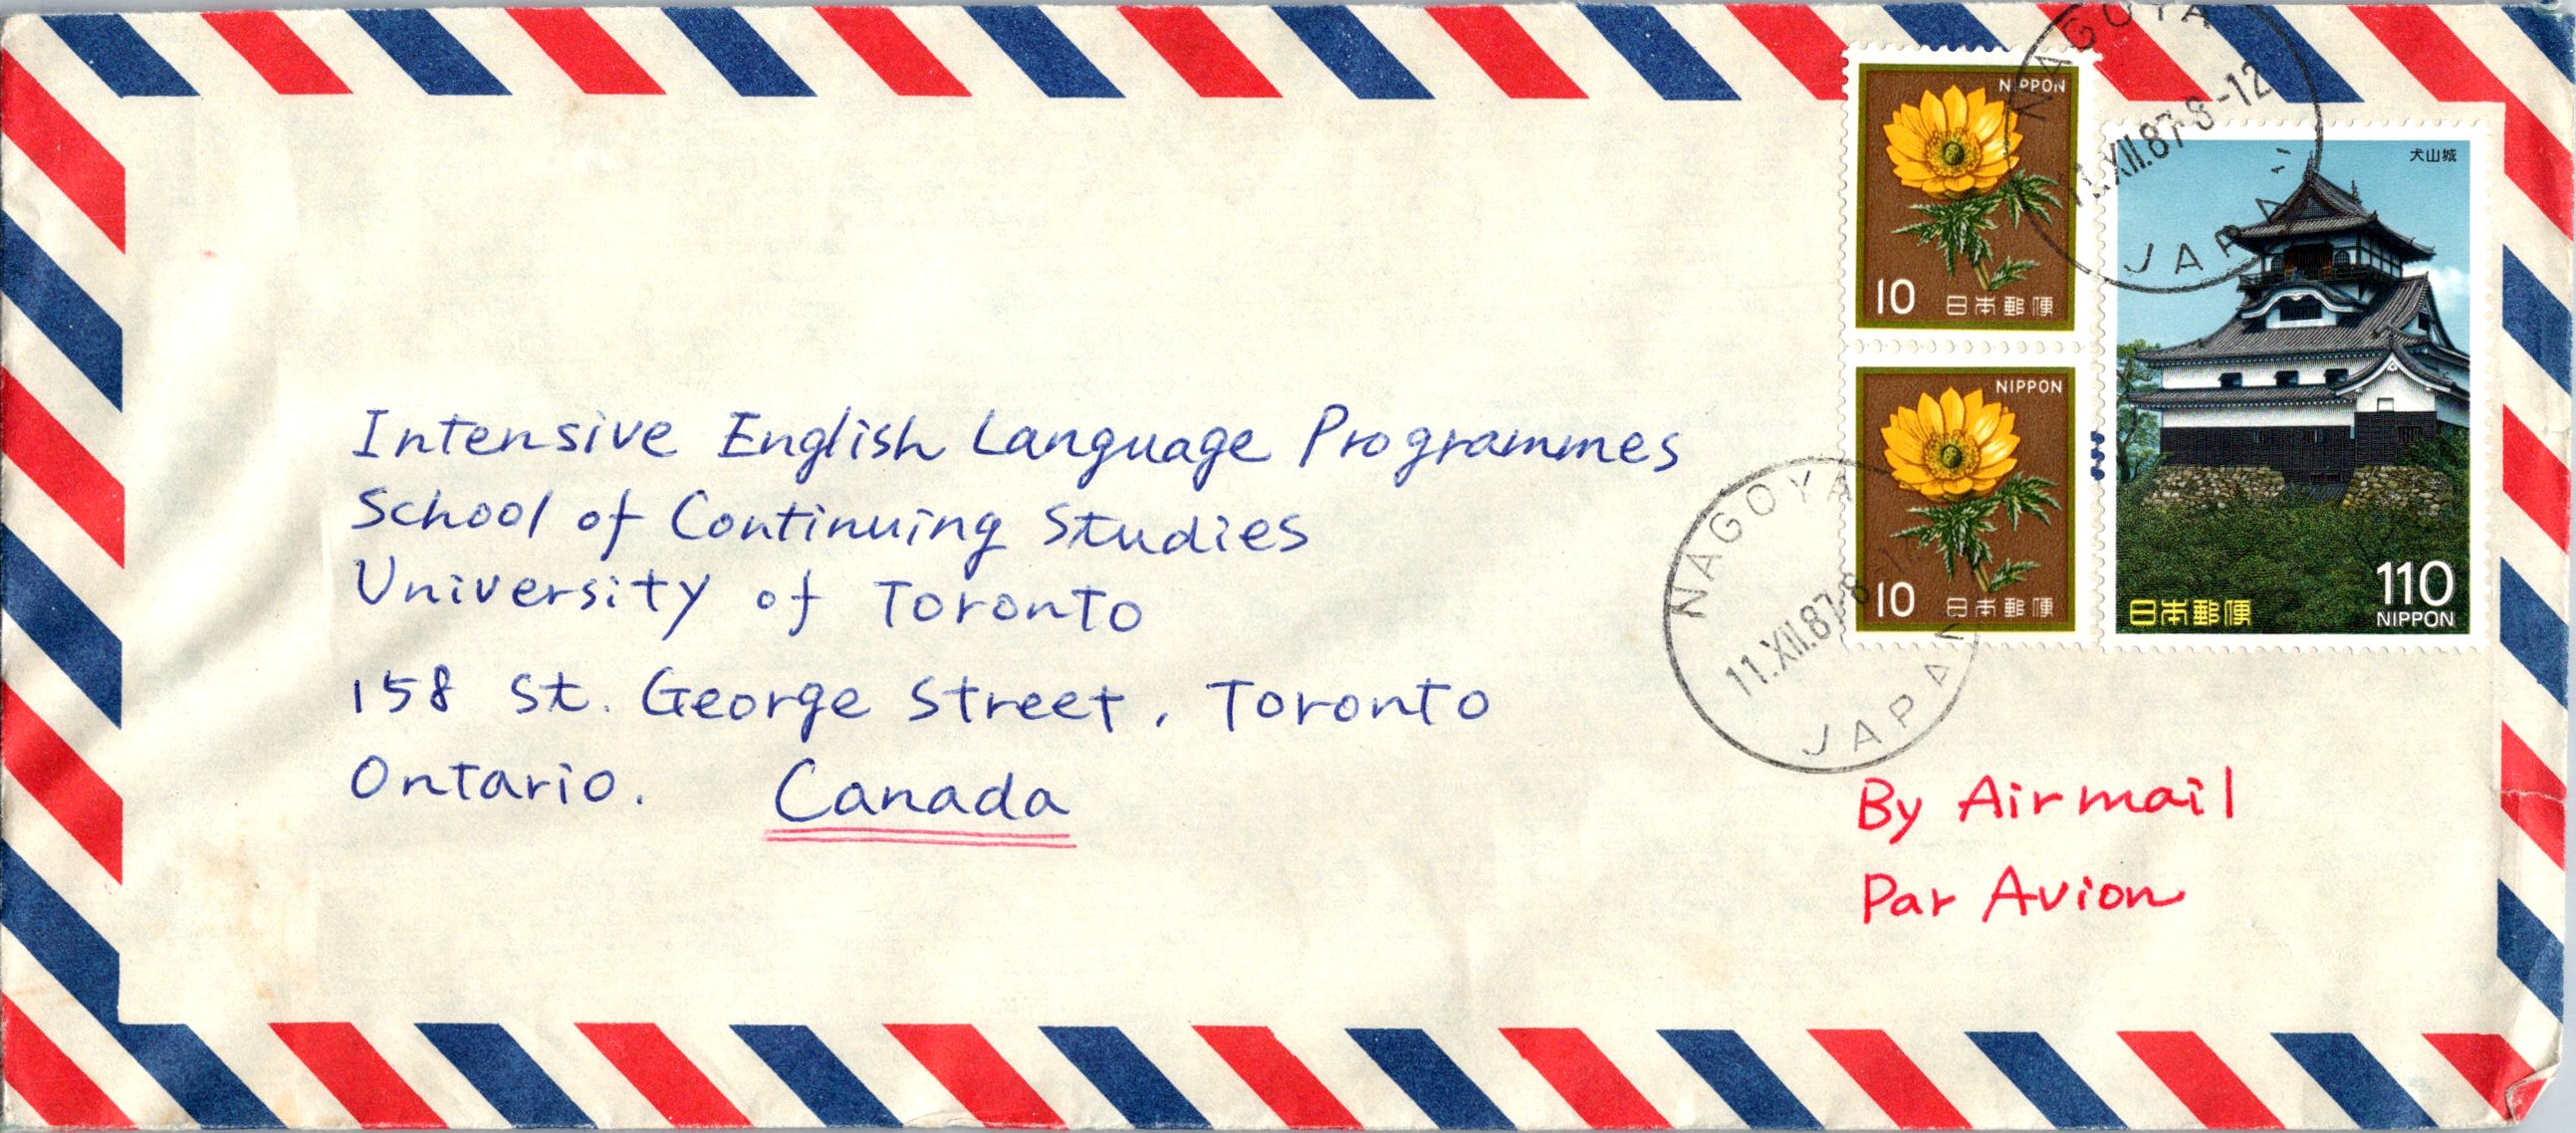 NAGOYA
11.XII.87.8-12
JAPAN
NIPPON
10 日本郵便
NIPPON
10 日本郵便
犬山城
110
日本郵便 NIPPON
Intensive English Language Programmes
School of Continuing Studies
University of Toronto
158 St. George Street, Toronto
Ontario. Canada
NAGOYA
11.XII.87.8-12
JAPAN
By Airmail
Par Avion